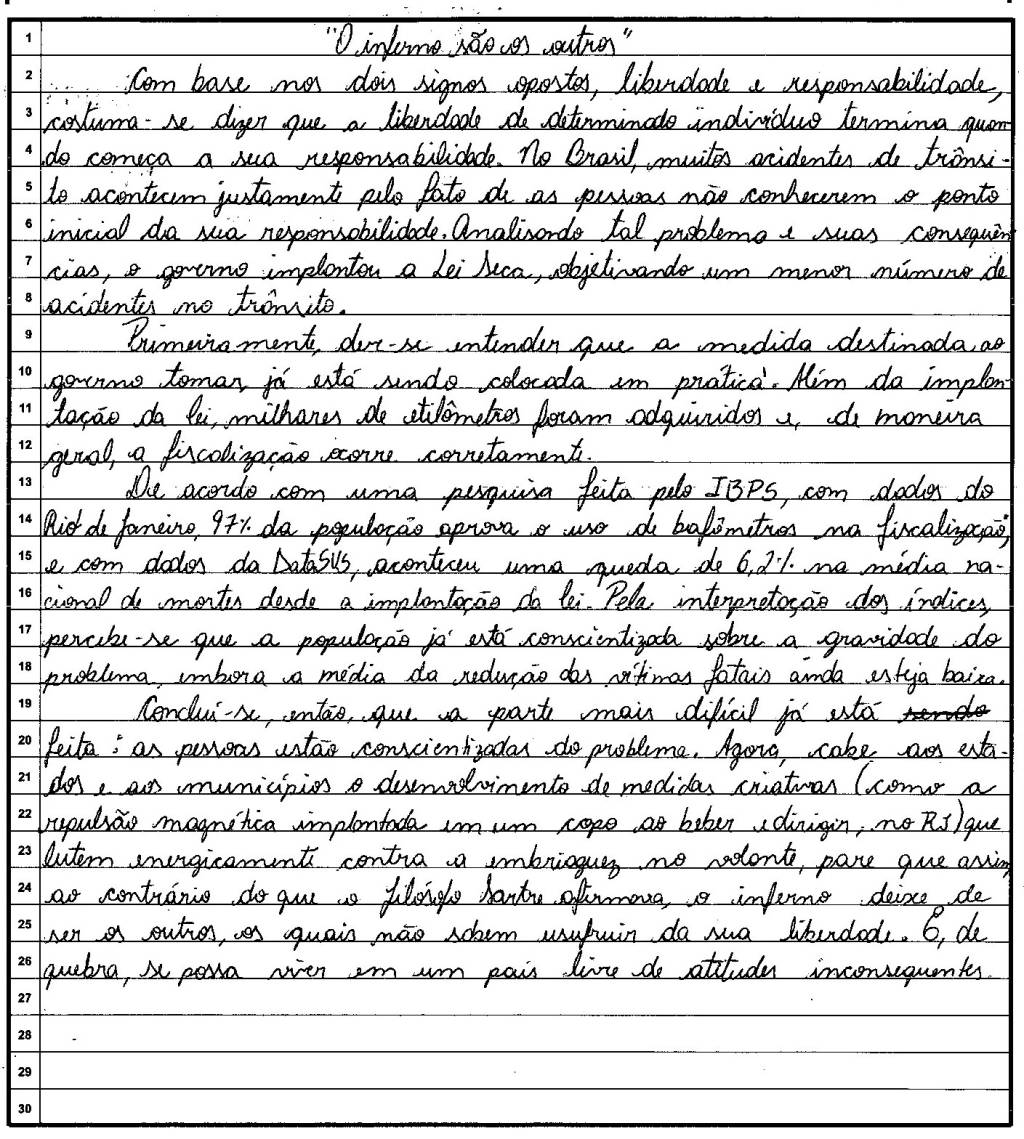 1 "O inferno são os outros"
2 Com base nos dois signos opostos, liberdade e responsabilidade,
3 costuma-se dizer que a liberdade de determinado indivíduo termina quan
4 do começa a sua responsabilidade. No Brasil, muitos acidentes de trânsi-
5 to acontecem justamente pelo fato de as pessoas não conhecerem o ponto
6 inicial da sua responsabilidade. Analisando tal problema e suas consequên
7 cias, o governo implantou a Lei Seca, objetivando um menor número de
8 acidentes no trânsito.
9 Primeiramente, dev-se entender que a medida destinada ao
10 governo tomar, já está sendo colocada em prática. Além da implan
11 tação da lei, milhares de etilômetros foram adquiridos e, de maneira
12 geral, a fiscalização ocorre corretamente.
13 De acordo com uma pesquisa feita pelo IBPS, com dados do
14 Rio de Janeiro, 97% da população aprova o uso de bafômetros na fiscalização;
15 e com dados da DataSUS, aconteceu uma queda de 6,2% na média na-
16 cional de mortes desde a implantação da lei. Pela interpretação dos índices,
17 percebe-se que a população já está conscientizada sobre a gravidade do
18 problema, embora a média da redução das vítimas fatais ainda esteja baixa.
19 Conclui-se, então, que a parte mais difícil já está sendo
20 feita: as pessoas estão conscientizadas do problema. Agora, cabe aos esta-
21 dos e aos municípios o desenvolvimento de medidas criativas (como a
22 repulsão magnética implantada em um copo ao beber e dirigir, no RJ) que
23 lutem energicamente contra a embriaguez no volante, para que assim,
24 ao contrário do que o filósofo Sartre afirmava, o inferno deixe de
25 ser os outros, os quais não sabem usufruir da sua liberdade. E, de
26 quebra, se possa viver em um país livre de atitudes inconsequentes.
27
28
29
30